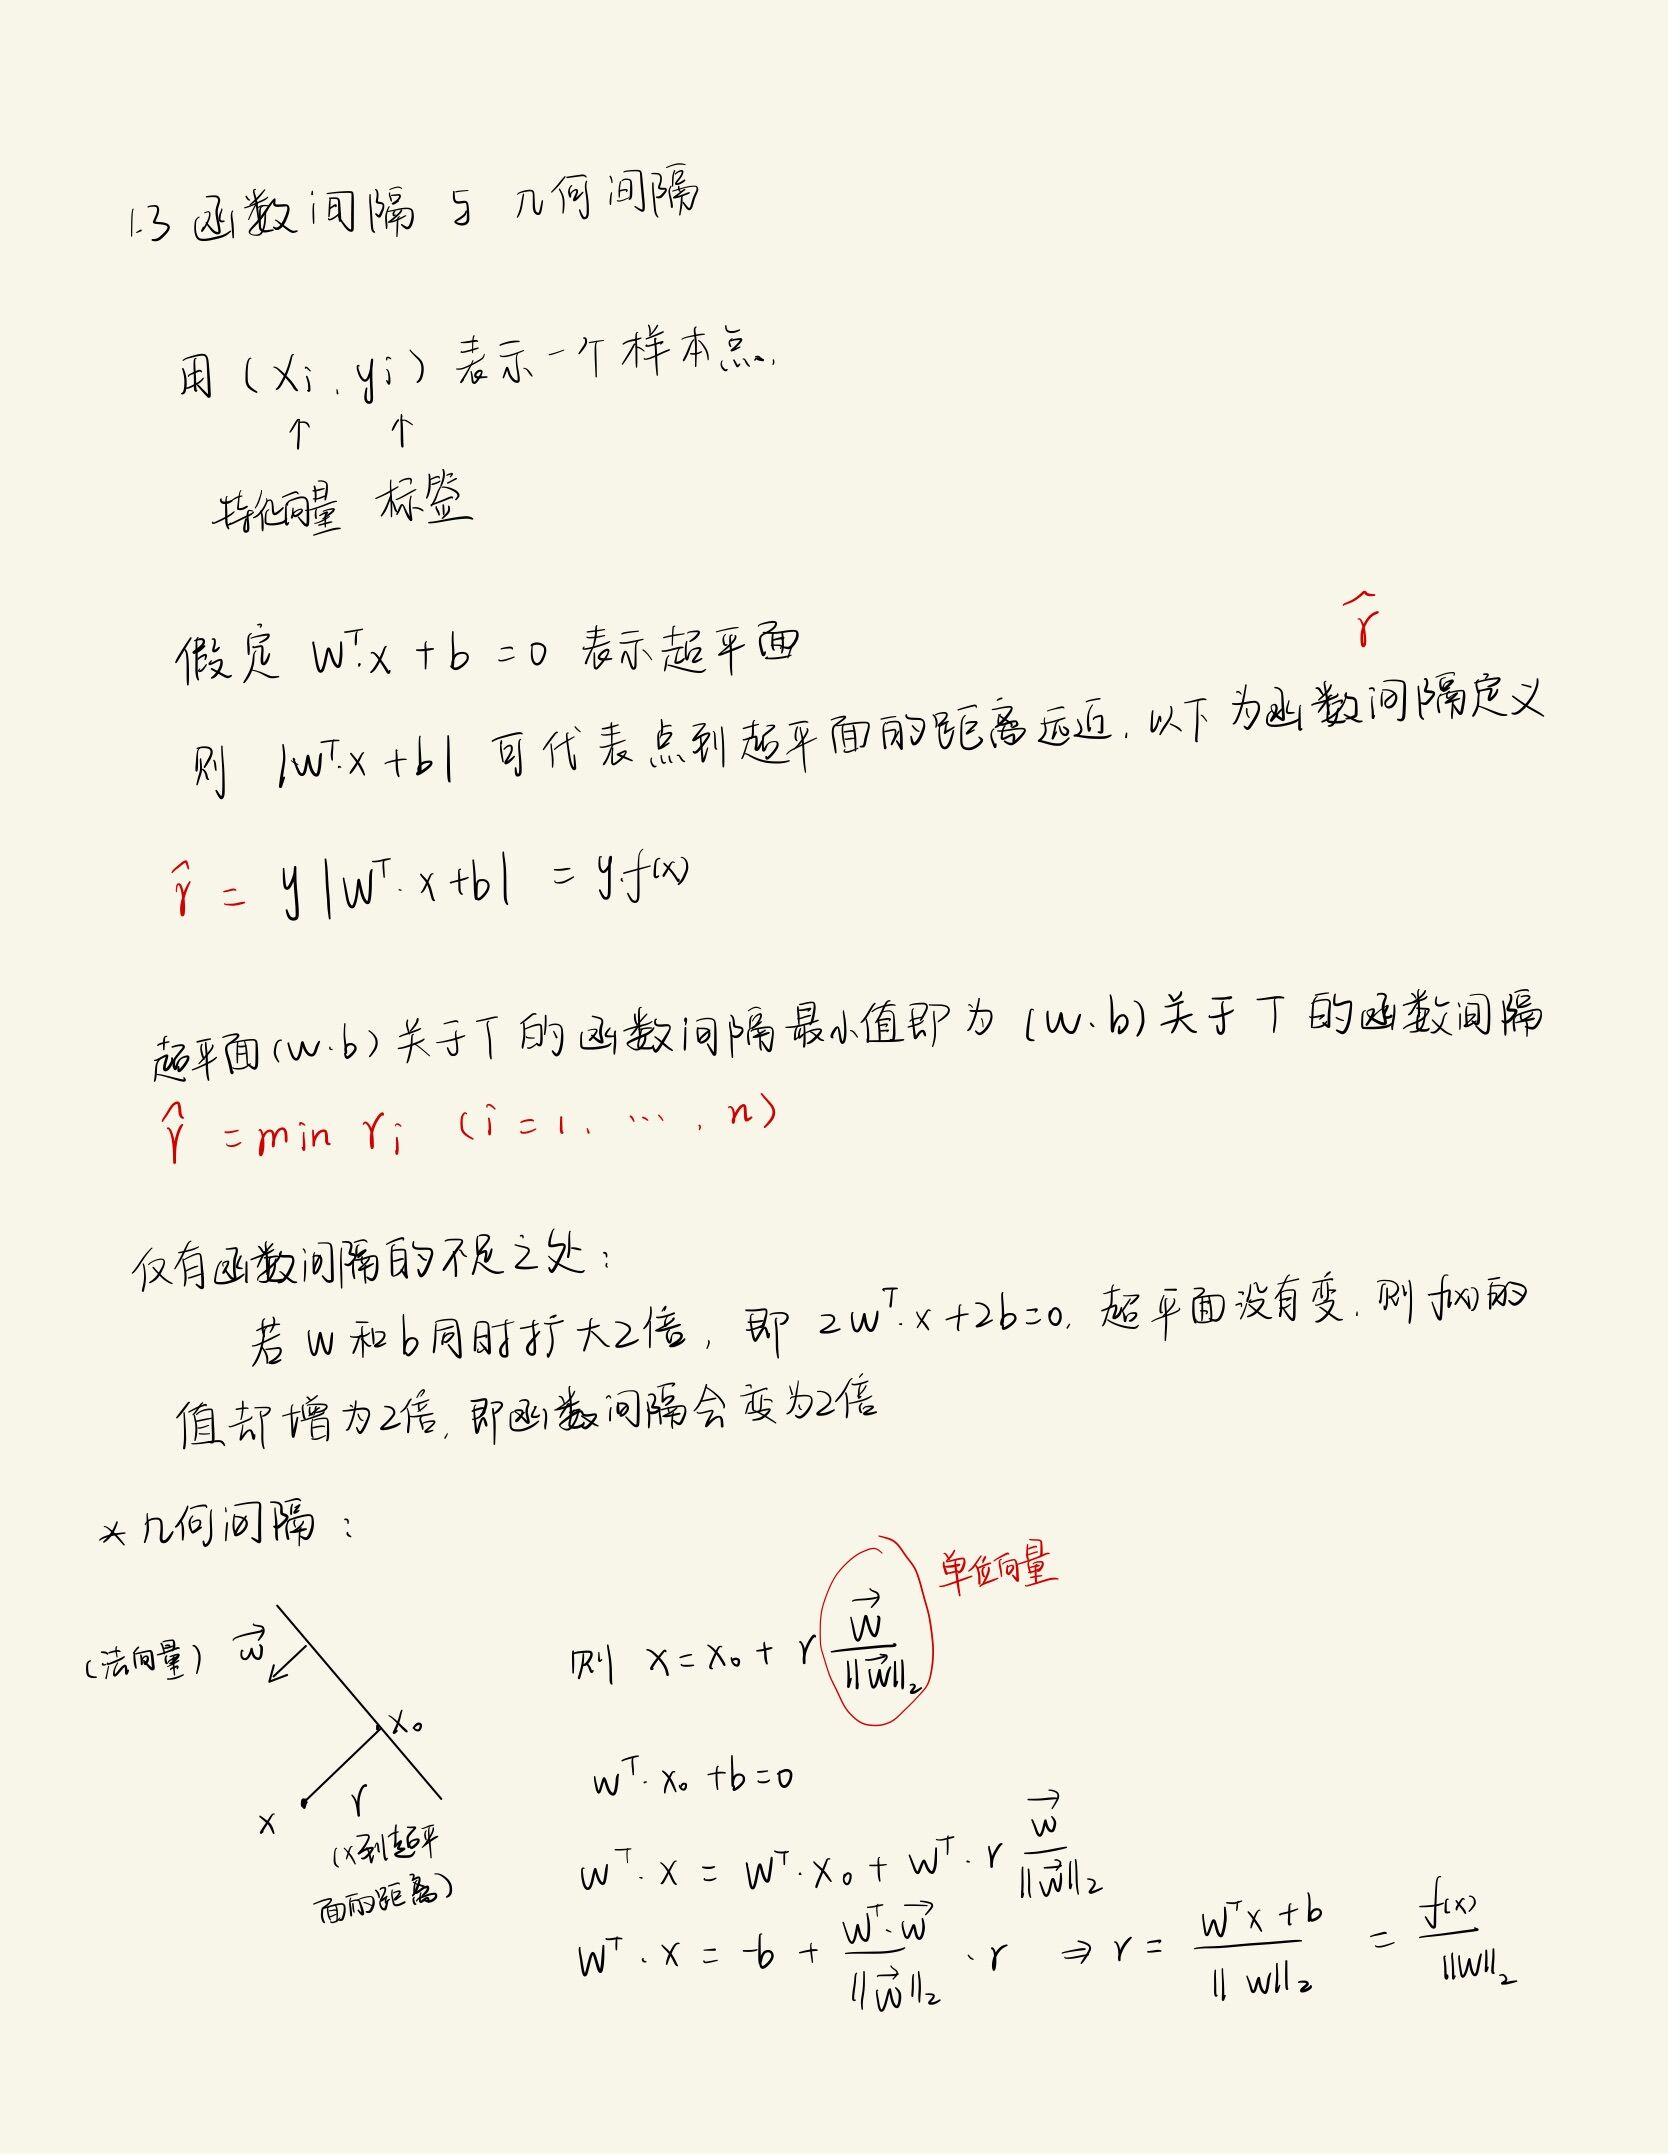 1.3 函数间隔与 几何间隔
用 (xi, yi) 表示一个样本点,
↑ ↑
特征向量 标签
r̂
假定 Wᵀ·x + b = 0 表示超平面
则 |Wᵀ·x + b| 可代表点到超平面的距离远近, 以下为函数间隔定义
r̂ = y |Wᵀ·x+b| = y·f(x)
超平面(w·b)关于T的函数间隔最小值即为 (w·b)关于T的函数间隔
r̂ = min ri (i = 1, ···, n)
仅有函数间隔的不足之处:
若 w 和 b 同时扩大2倍, 即 2wᵀ·x+2b=0, 超平面没有变, 则 f(x)的
值却增为2倍, 即函数间隔会变为2倍
* 几何间隔:
单位向量
(法向量) w⃗
则 x = x₀ + r w⃗/||w⃗||₂
x₀
wᵀ·x₀ + b = 0
x r
(x到超平
面的距离)
wᵀ·x = wᵀ·x₀ + wᵀ·r w⃗/||w⃗||₂
wᵀ·x = -b + wᵀ·w⃗/||w⃗||₂ · r ⇒ r = wᵀx + b/||w||₂ = f(x)/||w||₂